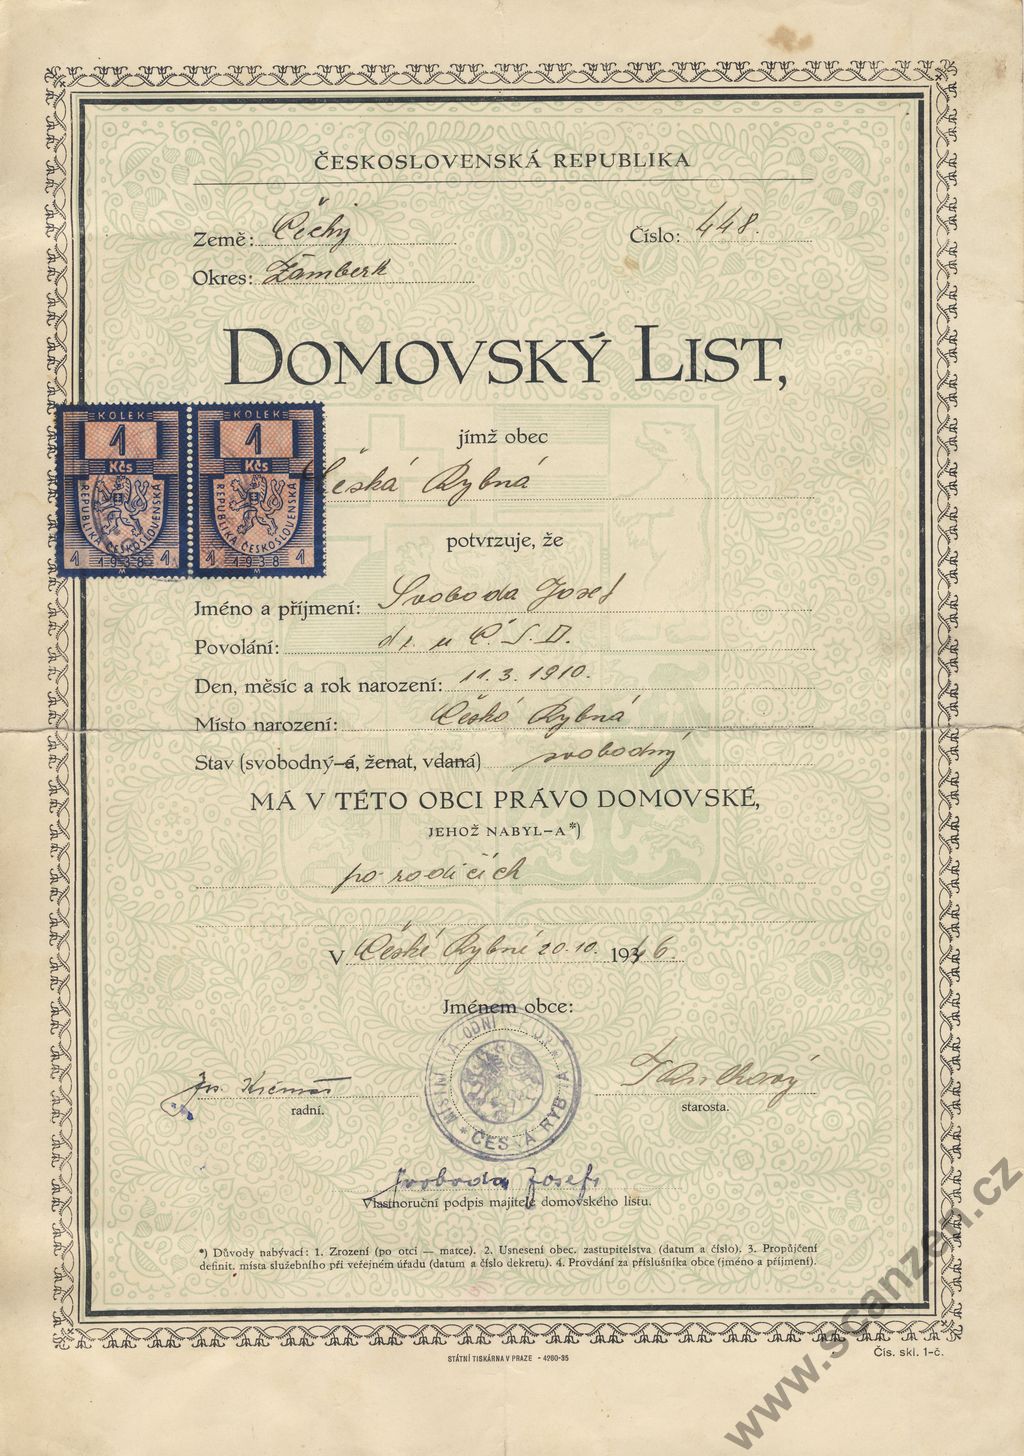 ČESKOSLOVENSKÁ REPUBLIKA
Země: Čechy
Číslo: 448.
Okres: Žamberk
DOMOVSKÝ LIST,
KOLEK KOLEK
1 1
Kčs Kčs
REPUBLIKA ČESKOSLOVENSKÁ REPUBLIKA ČESKOSLOVENSKÁ
1 1938 1 1 1938 1
M M
jímž obec
Česká Rybná
potvrzuje, že
Jméno a příjmení: Svoboda Josef
Povolání: u Č.S.D.
Den, měsíc a rok narození: 11.3.1910.
Místo narození: Česká Rybná
Stav (svobodný-á, ženat, vdaná) svobodný
MÁ V TÉTO OBCI PRÁVO DOMOVSKÉ,
JEHOŽ NABYL-A*)
po rodičích
V České Rybné 20.10. 1946.
Jménem obce:
MÍSTNÍ NÁRODNÍ VÝBOR * ČESKÁ RYBNÁ *
radní.
starosta.
Svoboda Josef
Vlastnoruční podpis majitele domovského listu.
*) Důvody nabývací: 1. Zrození (po otci — matce). 2. Usnesení obec. zastupitelstva (datum a číslo). 3. Propůjčení
definit. místa služebního při veřejném úřadu (datum a číslo dekretu). 4. Provdání za příslušníka obce (jméno a příjmení).
STÁTNÍ TISKÁRNA V PRAZE - 4260-35
Čís. skl. 1-č.
www.scanzen.cz